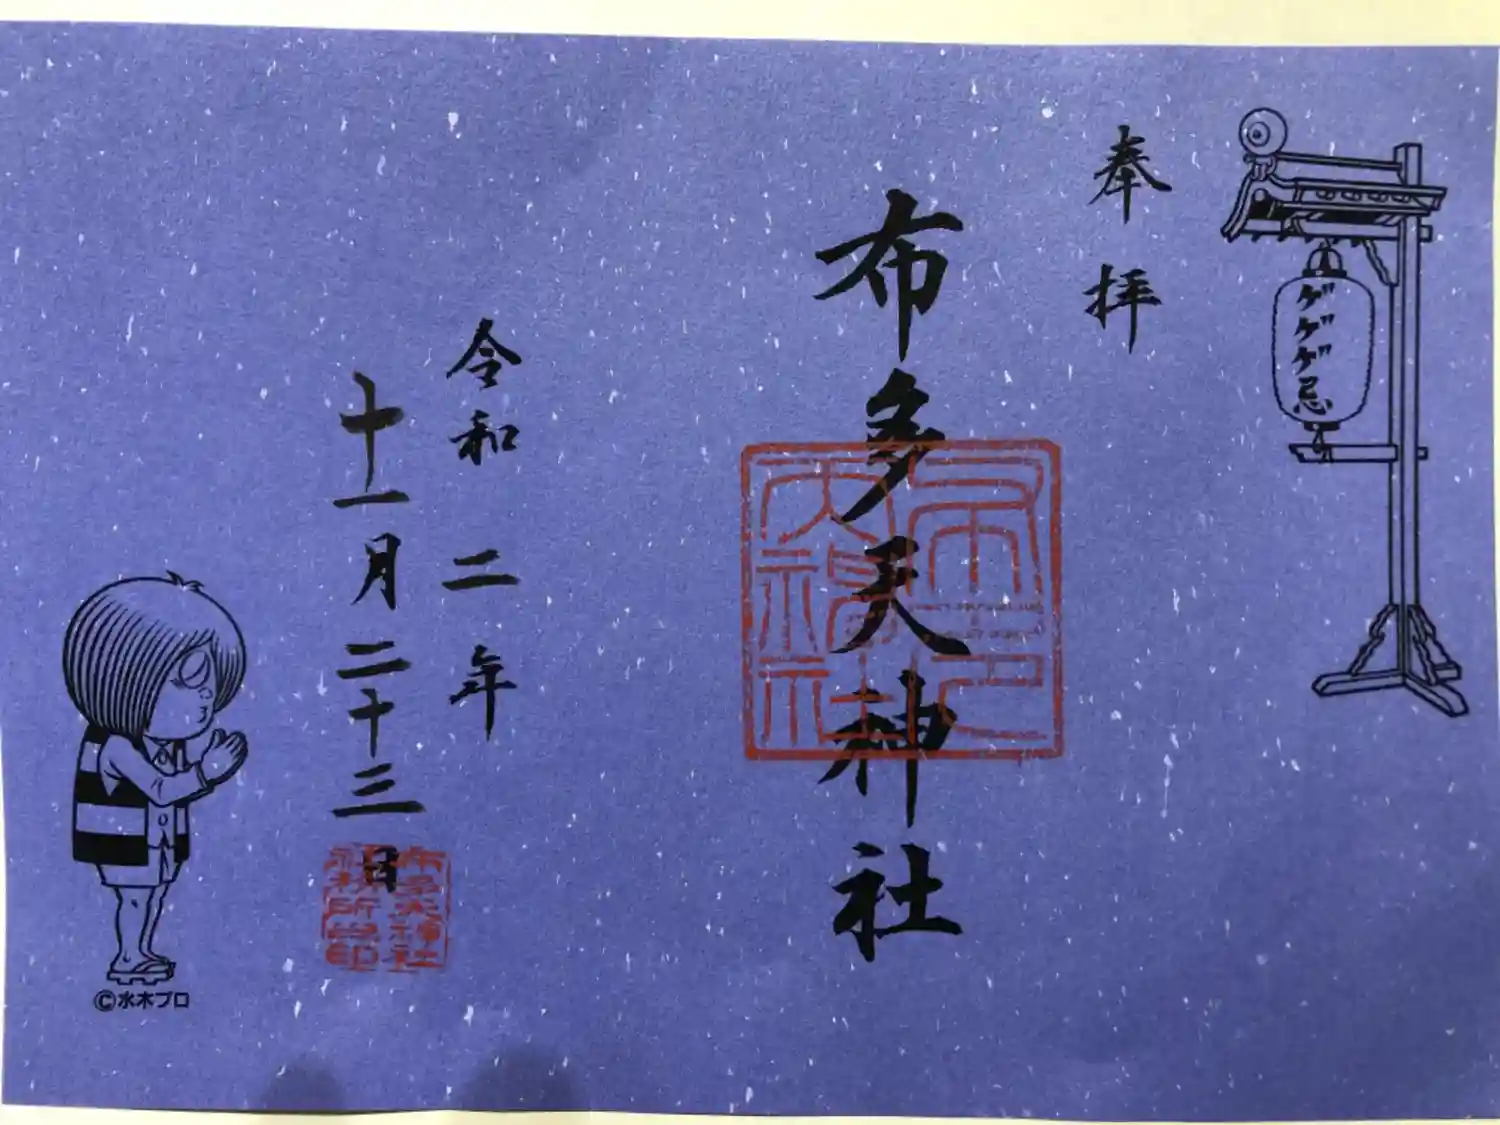 ゲゲゲ忌
奉拝
布多天神社
令和二年
十一月二十三日
布多天神社
社務所之印
©水木プロ